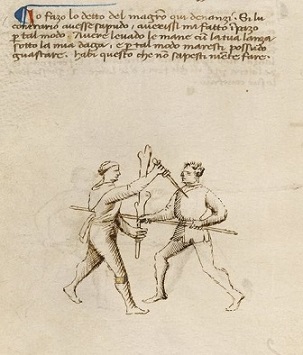 Io fazo lo detto del magistro qui denanzi. Si lu
contrario avesse sapudo, averissi mi fatto impazo
p tal modo. Avere levado le mane cū la tua lanza
sotto la mia daga, e p tal modo maresti possudo
guastare. habi questo che nō sapesti niente fare.